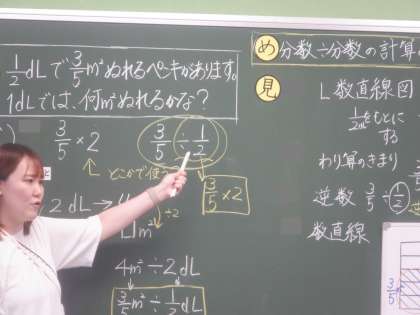 1/2 dLで 3/5 m²ぬれるペンキがあります。
1dLでは、何m²ぬれるかな?
3/5 × 2
3/5 ÷ 1/2
どこかで使う
3/5 × 2
2dL →
÷2
m²
4m² ÷ 2dL
3/5 m² ÷ 1/2 dL
め 分数÷分数の計算
見
数直線図
1/2をもとにする
わり算のきまり
逆数 3/5 ÷ 1/2
数直線
3/5